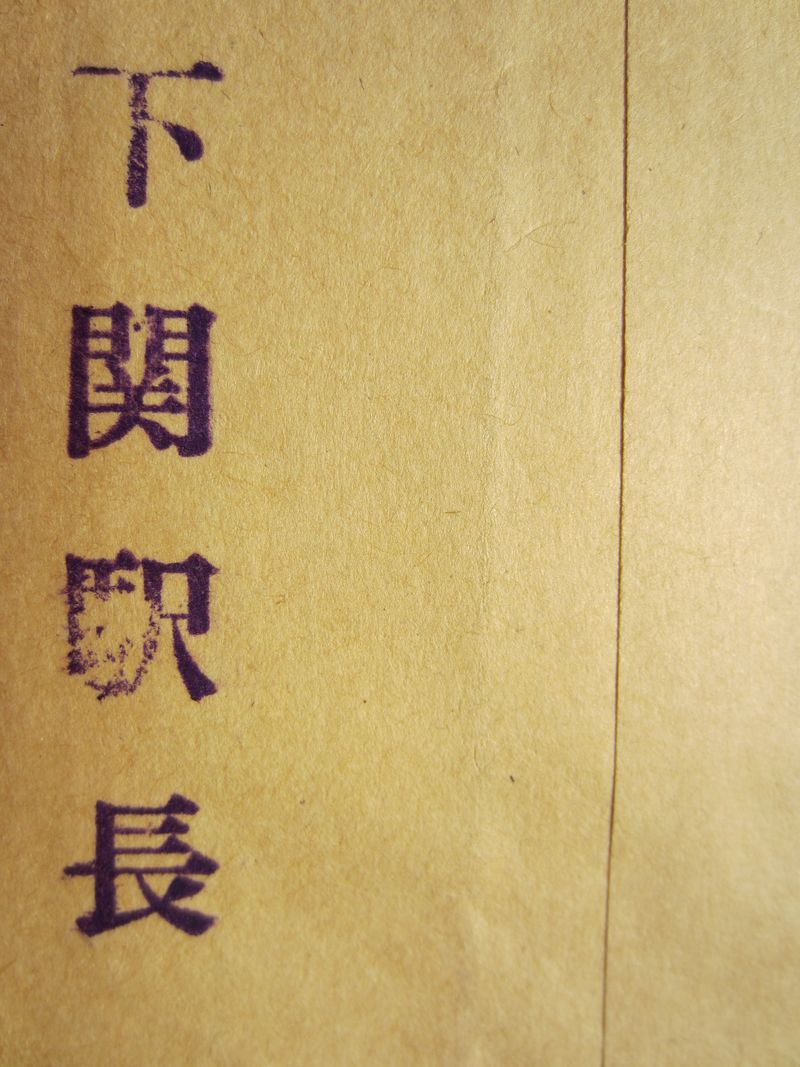 下関駅長